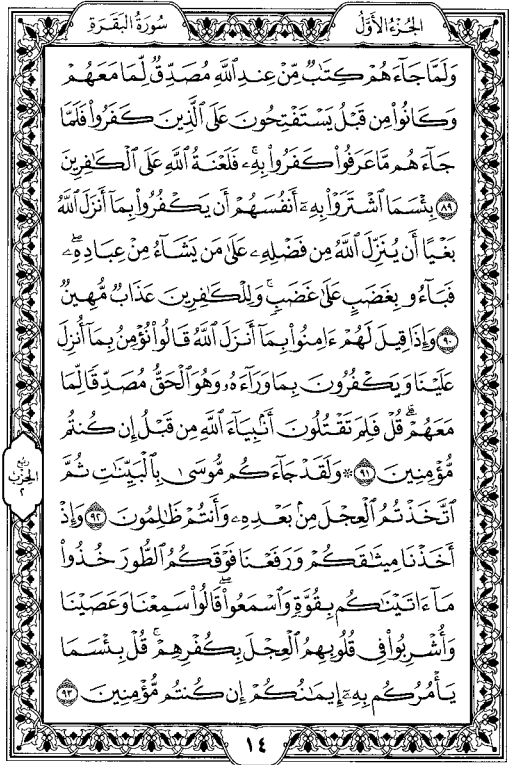 سُورَةُ البَقَرَة
الجُزءُ الأَوَّلُ
وَلَمَّا جَآءَهُمْ كِتَٰبٌ مِّنْ عِندِ ٱللَّهِ مُصَدِّقٌ لِّمَا مَعَهُمْ
وَكَانُوا۟ مِن قَبْلُ يَسْتَفْتِحُونَ عَلَى ٱلَّذِينَ كَفَرُوا۟ فَلَمَّا
جَآءَهُم مَّا عَرَفُوا۟ كَفَرُوا۟ بِهِۦ ۚ فَلَعْنَةُ ٱللَّهِ عَلَى ٱلْكَٰفِرِينَ
٨٩ بِئْسَمَا ٱشْتَرَوْا۟ بِهِۦٓ أَنفُسَهُمْ أَن يَكْفُرُوا۟ بِمَآ أَنزَلَ ٱللَّهُ
بَغْيًا أَن يُنَزِّلَ ٱللَّهُ مِن فَضْلِهِۦ عَلَىٰ مَن يَشَآءُ مِنْ عِبَادِهِۦ ۖ
فَبَآءُو بِغَضَبٍ عَلَىٰ غَضَبٍ ۚ وَلِلْكَٰفِرِينَ عَذَابٌ مُّهِينٌ
٩٠ وَإِذَا قِيلَ لَهُمْ ءَامِنُوا۟ بِمَآ أَنزَلَ ٱللَّهُ قَالُوا۟ نُؤْمِنُ بِمَآ أُنزِلَ
عَلَيْنَا وَيَكْفُرُونَ بِمَا وَرَآءَهُۥ وَهُوَ ٱلْحَقُّ مُصَدِّقًا لِّمَا
مَعَهُمْ ۗ قُلْ فَلِمَ تَقْتُلُونَ أَنۢبِيَآءَ ٱللَّهِ مِن قَبْلُ إِن كُنتُم
مُّؤْمِنِينَ ٩١ ۞ وَلَقَدْ جَآءَكُم مُّوسَىٰ بِٱلْبَيِّنَٰتِ ثُمَّ
ٱتَّخَذْتُمُ ٱلْعِجْلَ مِنۢ بَعْدِهِۦ وَأَنتُمْ ظَٰلِمُونَ ٩٢ وَإِذْ
أَخَذْنَا مِيثَٰقَكُمْ وَرَفَعْنَا فَوْقَكُمُ ٱلطُّورَ خُذُوا۟
مَآ ءَاتَيْنَٰكُم بِقُوَّةٍ وَٱسْمَعُوا۟ ۖ قَالُوا۟ سَمِعْنَا وَعَصَيْنَا
وَأُشْرِبُوا۟ فِى قُلُوبِهِمُ ٱلْعِجْلَ بِكُفْرِهِمْ ۚ قُلْ بِئْسَمَا
يَأْمُرُكُم بِهِۦٓ إِيمَٰنُكُمْ إِن كُنتُم مُّؤْمِنِينَ ٩٣
ربع
الحِزْب
٢
١٤